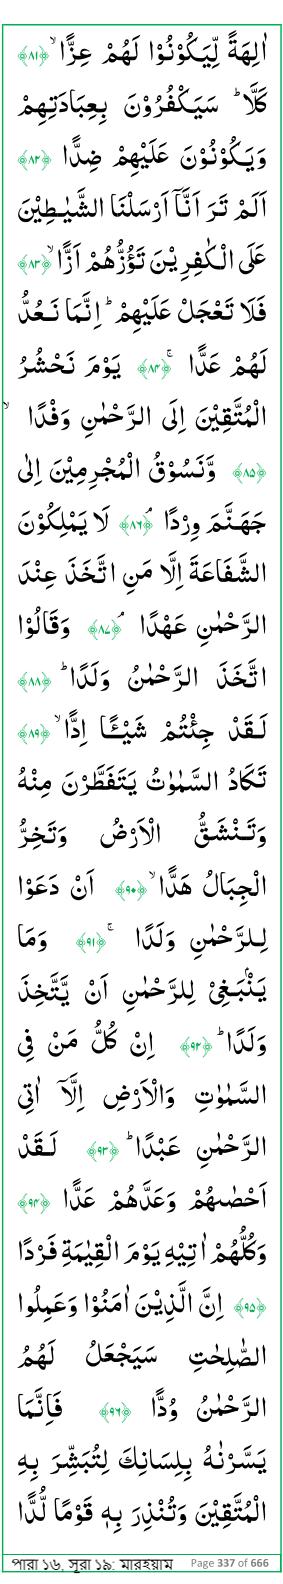 اٰلِهَةً لِّيَكُوْنُوْا لَهُمْ عِزًّا ۙ ﴿۸۱﴾
كَلَّا ؕ سَيَكْفُرُوْنَ بِعِبَادَتِهِمْ
وَيَكُوْنُوْنَ عَلَيْهِمْ ضِدًّا ﴿۸۲﴾
اَلَمْ تَرَ اَنَّاۤ اَرْسَلْنَا الشَّيٰطِيْنَ
عَلَى الْكٰفِرِيْنَ تَؤُزُّهُمْ اَزًّا ۙ ﴿۸۳﴾
فَلَا تَعْجَلْ عَلَيْهِمْ ؕ اِنَّمَا نَعُدُّ
لَهُمْ عَدًّا ۚ ﴿۸۴﴾ يَوْمَ نَحْشُرُ
الْمُتَّقِيْنَ اِلَى الرَّحْمٰنِ وَفْدًا ۙ
﴿۸۵﴾ وَّنَسُوْقُ الْمُجْرِمِيْنَ اِلٰى
جَهَنَّمَ وِرْدًا ۘ ﴿۸۶﴾ لَا يَمْلِكُوْنَ
الشَّفَاعَةَ اِلَّا مَنِ اتَّخَذَ عِنْدَ
الرَّحْمٰنِ عَهْدًا ۘ ﴿۸۷﴾ وَقَالُوْا
اتَّخَذَ الرَّحْمٰنُ وَلَدًا ؕ ﴿۸۸﴾
لَـقَدْ جِئْتُمْ شَيْـًٔـا اِدًّا ۙ ﴿۸۹﴾
تَكَادُ السَّمٰوٰتُ يَتَفَطَّرْنَ مِنْهُ
وَتَـنْشَقُّ الْاَرْضُ وَتَخِرُّ
الْجِبَالُ هَدًّا ۙ ﴿۹۰﴾ اَنْ دَعَوْا
لِـلرَّحْمٰنِ وَلَدًا ۚ ﴿۹۱﴾ وَمَا
يَنْۢبَـغِىْ لِلرَّحْمٰنِ اَنْ يَّتَّخِذَ
وَلَدًا ؕ ﴿۹۲﴾ اِنْ كُلُّ مَنْ فِى
السَّمٰوٰتِ وَالْاَرْضِ اِلَّاۤ اٰتِى
الرَّحْمٰنِ عَبْدًا ؕ ﴿۹۳﴾ لَـقَدْ
اَحْصٰٮهُمْ وَعَدَّهُمْ عَدًّا ﴿۹۴﴾
وَكُلُّهُمْ اٰتِيْهِ يَوْمَ الْقِيٰمَةِ فَرْدًا
﴿۹۵﴾ اِنَّ الَّذِيْنَ اٰمَنُوْا وَعَمِلُوا
الصّٰلِحٰتِ سَيَجْعَلُ لَهُمُ
الرَّحْمٰنُ وُدًّا ﴿۹۶﴾ فَاِنَّمَا
يَسَّرْنٰهُ بِلِسَانِكَ لِتُبَشِّرَ بِهِ
الْمُتَّقِيْنَ وَتُنْذِرَ بِهٖ قَوْمًا لُّدًّا
পারা ১৬, সূরা ১৯: মারইয়াম Page 337 of 666